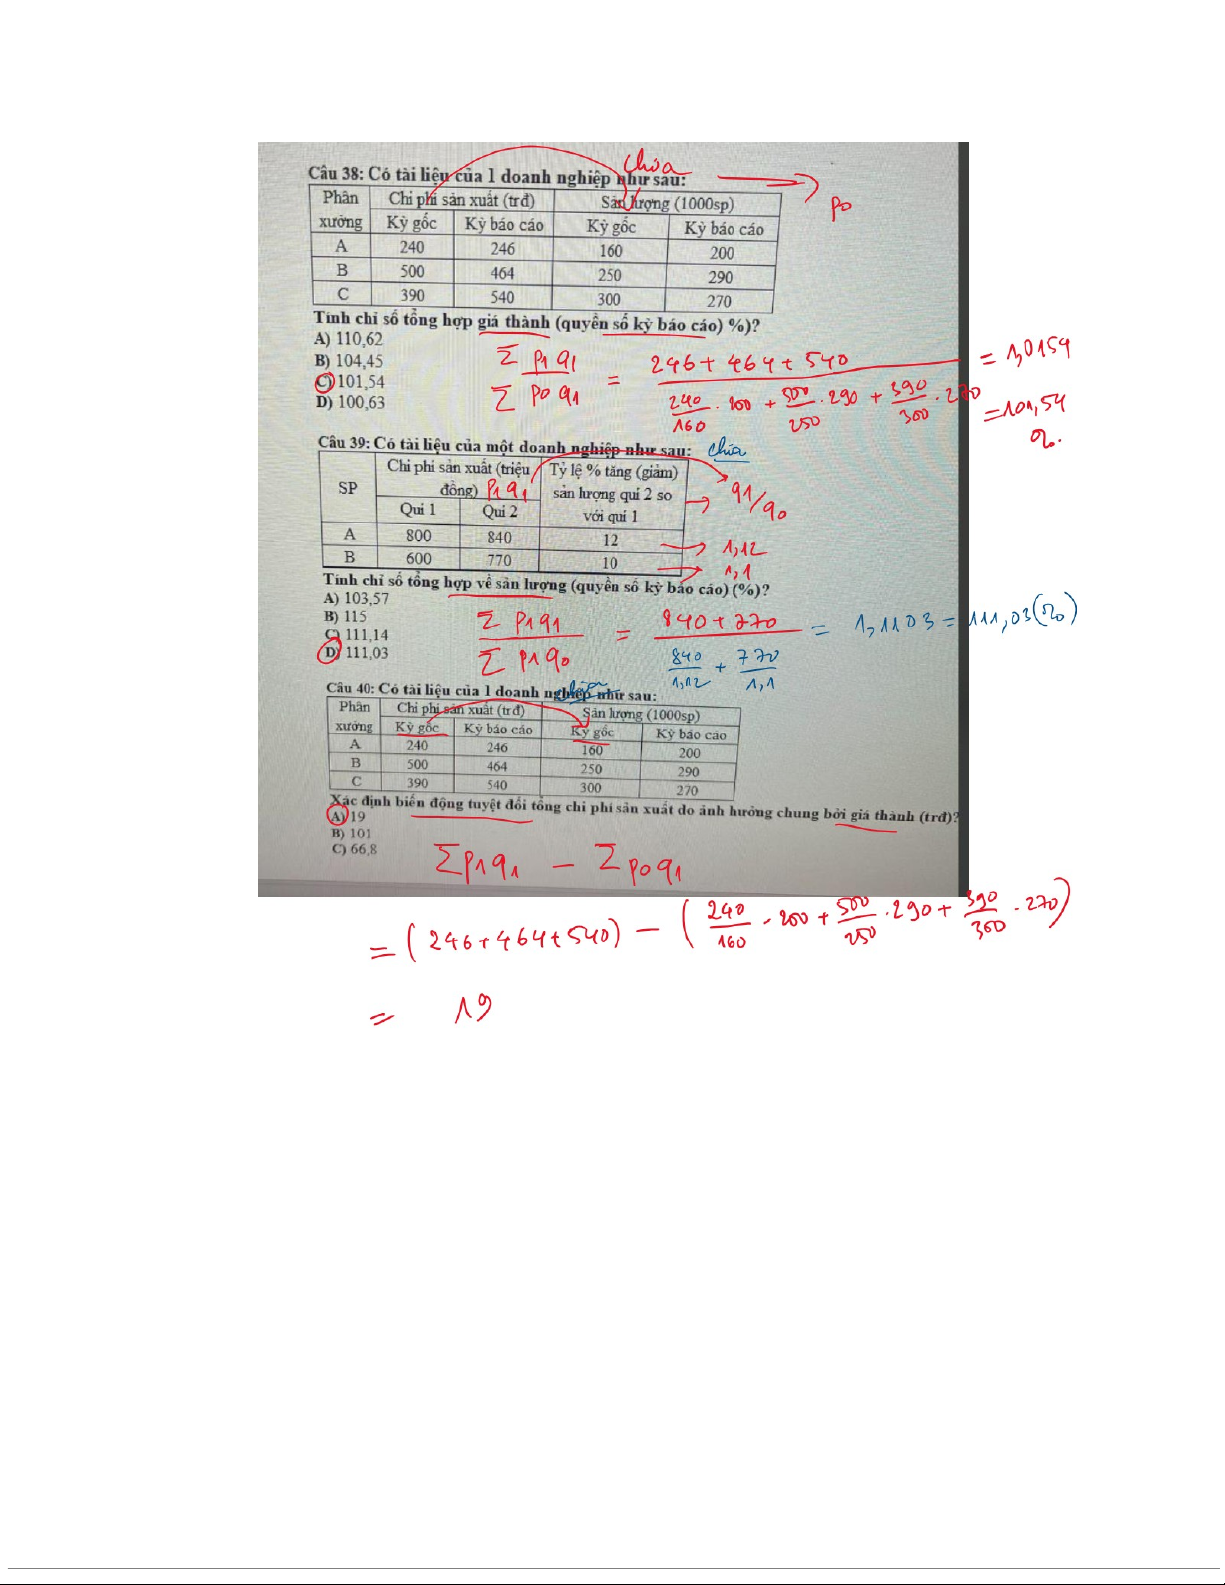 chia
Câu 38: Có tài liệu của 1 doanh nghiệp như sau:
p0
Phân xưởng Chi phí sản xuất (trđ) Sản lượng (1000sp)
Kỳ gốc Kỳ báo cáo Kỳ gốc Kỳ báo cáo
A 240 246 160 200
B 500 464 250 290
C 390 540 300 270
Tính chỉ số tổng hợp giá thành (quyền số kỳ báo cáo) %)?
A) 110,62
B) 104,45
C) 101,54
D) 100,63
Σ p1q1 / Σ p0q1 = (246 + 464 + 540) / (240/160 . 200 + 500/250 . 290 + 390/300 . 270) = 1,0154
= 101,54 %.
Câu 39: Có tài liệu của một doanh nghiệp như sau: chia
SP Chi phí sản xuất (triệu đồng) p1q1 Tỷ lệ % tăng (giảm) sản lượng quí 2 so với quí 1 → q1/q0
Qui 1 Qui 2
A 800 840 12 → 1,12
B 600 770 10 → 1,1
Tính chỉ số tổng hợp về sản lượng (quyền số kỳ báo cáo) (%)?
A) 103,57
B) 115
C) 111,14
D) 111,03
Σ p1q1 / Σ p1q0 = (840 + 770) / (840/1,12 + 770/1,1) = 1,1103 = 111,03 (%)
Câu 40: Có tài liệu của 1 doanh nghiệp như sau:
Phân xưởng Chi phí sản xuất (trđ) Sản lượng (1000sp)
Kỳ gốc Kỳ báo cáo Kỳ gốc Kỳ báo cáo
A 240 246 160 200
B 500 464 250 290
C 390 540 300 270
Xác định biến động tuyệt đối tổng chi phí sản xuất do ảnh hưởng chung bởi giá thành (trđ)?
A) 19
B) 101
C) 66,8
Σp1q1 – Σp0q1
= (246 + 464 + 540) – (240/160 . 200 + 500/250 . 290 + 390/300 . 270)
= 19